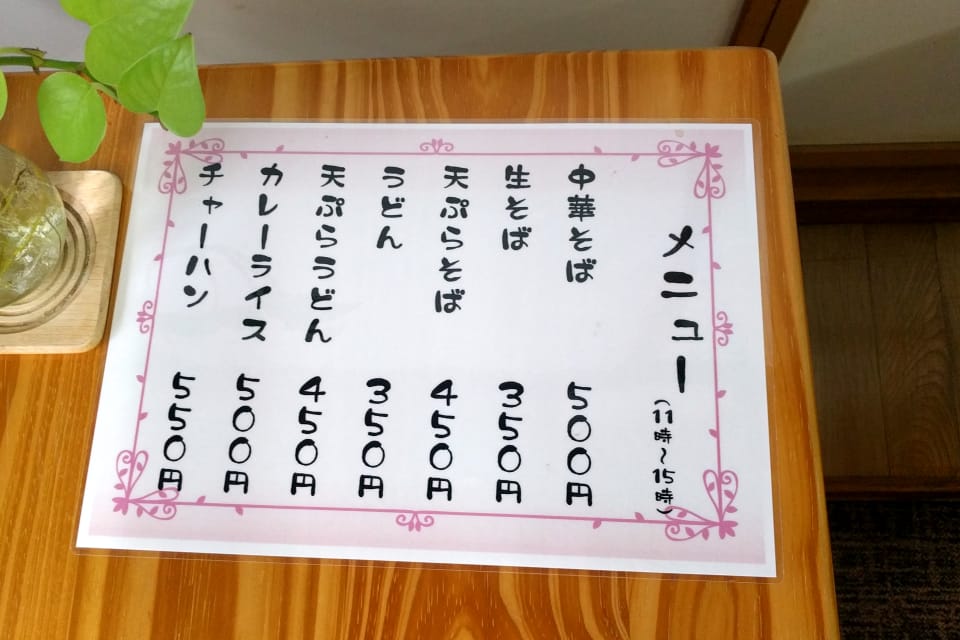 メニュー
(11時～15時)
中華そば 500円
生そば 350円
天ぷらそば 450円
うどん 350円
天ぷらうどん 450円
カレーライス 500円
チャーハン 550円